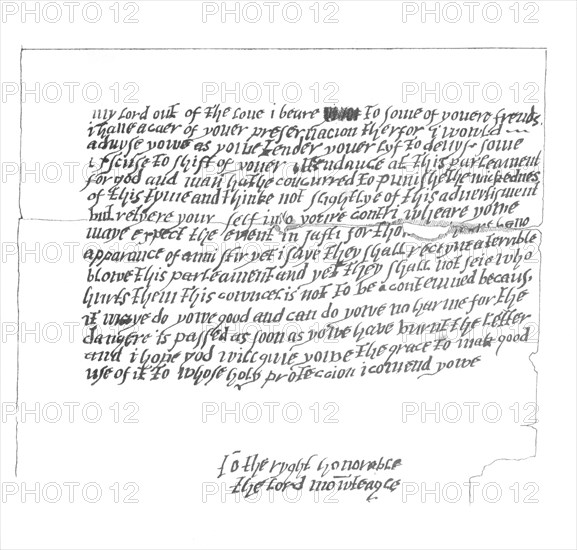 my lord out of the loue i beare to some of youere frends
i haue a caer of youer preseruacion therfor i would
aduyse yowe as yowe tender youer lyf to deuyse some
exscuse to shift of youer attendance at this parleament
for god and man hathe concurred to punishe the wickednes
of this tyme and thinke not slightlye of this aduertisment
but retyere youre self into youre contri wheare yowe
maye expect the euent in safti for tho
apparance of anni stir yet i saye they shall receyue a terrible
blowe this parleament and yet they shall not seie who
hurts them this councel is not to be contemned becaus
it maye do yowe good and can do yowe no harme for the
dangere is passed as soon as yowe have burnt the letter
and i hope god will giue yowe the grace to mak good
use of it to whose holy proteccion i comend yowe
To the ryght honorable
the lord mowteagle
PHOTO 12